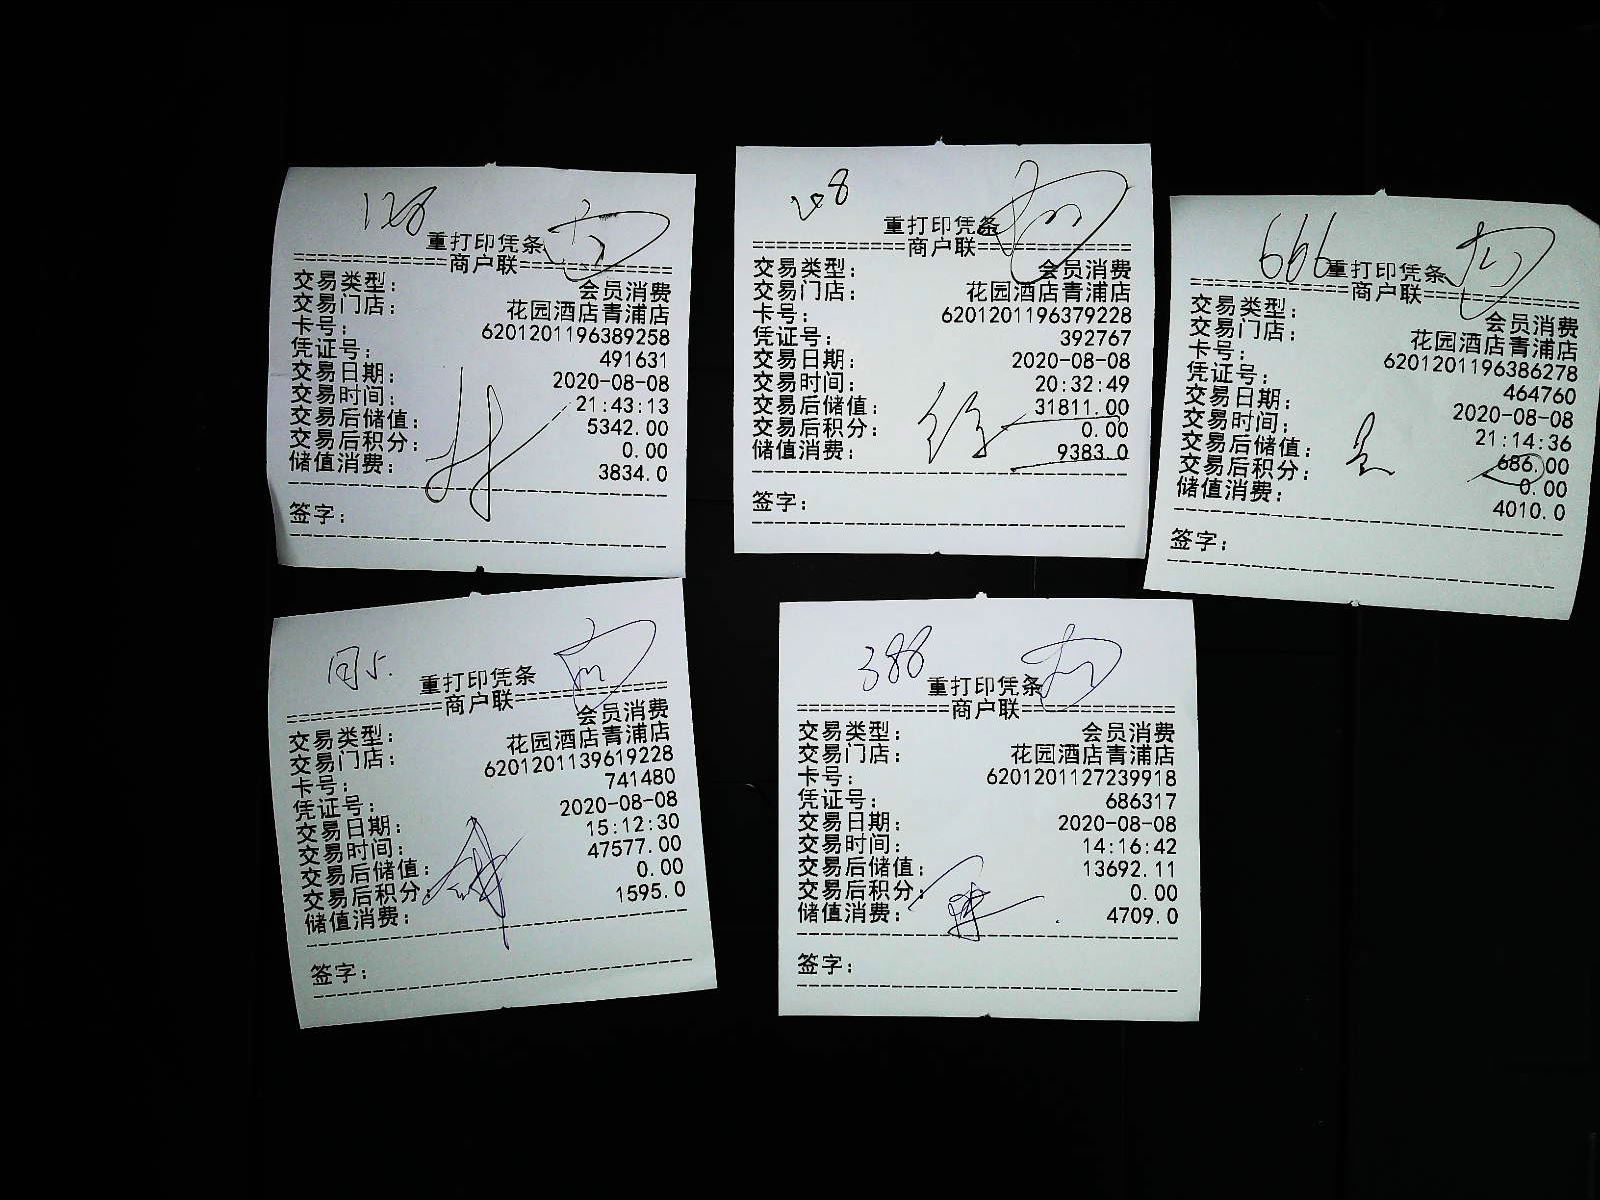 128
重打印凭条
============商户联============
交易类型: 会员消费
交易门店: 花园酒店青浦店
卡号: 6201201196389258
凭证号: 491631
交易日期: 2020-08-08
交易时间: 21:43:13
交易后储值: 5342.00
交易后积分: 0.00
储值消费: 3834.0
签字:
208
重打印凭条
============商户联============
交易类型: 会员消费
交易门店: 花园酒店青浦店
卡号: 6201201196379228
凭证号: 392767
交易日期: 2020-08-08
交易时间: 20:32:49
交易后储值: 31811.00
交易后积分: 0.00
储值消费: 9383.0
签字:
666
重打印凭条
============商户联============
交易类型: 会员消费
交易门店: 花园酒店青浦店
卡号: 6201201196386278
凭证号: 464760
交易日期: 2020-08-08
交易时间: 21:14:36
交易后储值: 686.00
交易后积分: 0.00
储值消费: 4010.0
签字:
重打印凭条
============商户联============
交易类型: 会员消费
交易门店: 花园酒店青浦店
卡号: 6201201139619228
凭证号: 741480
交易日期: 2020-08-08
交易时间: 15:12:30
交易后储值: 47577.00
交易后积分: 0.00
储值消费: 1595.0
签字:
388
重打印凭条
============商户联============
交易类型: 会员消费
交易门店: 花园酒店青浦店
卡号: 6201201127239918
凭证号: 686317
交易日期: 2020-08-08
交易时间: 14:16:42
交易后储值: 13692.11
交易后积分: 0.00
储值消费: 4709.0
签字: